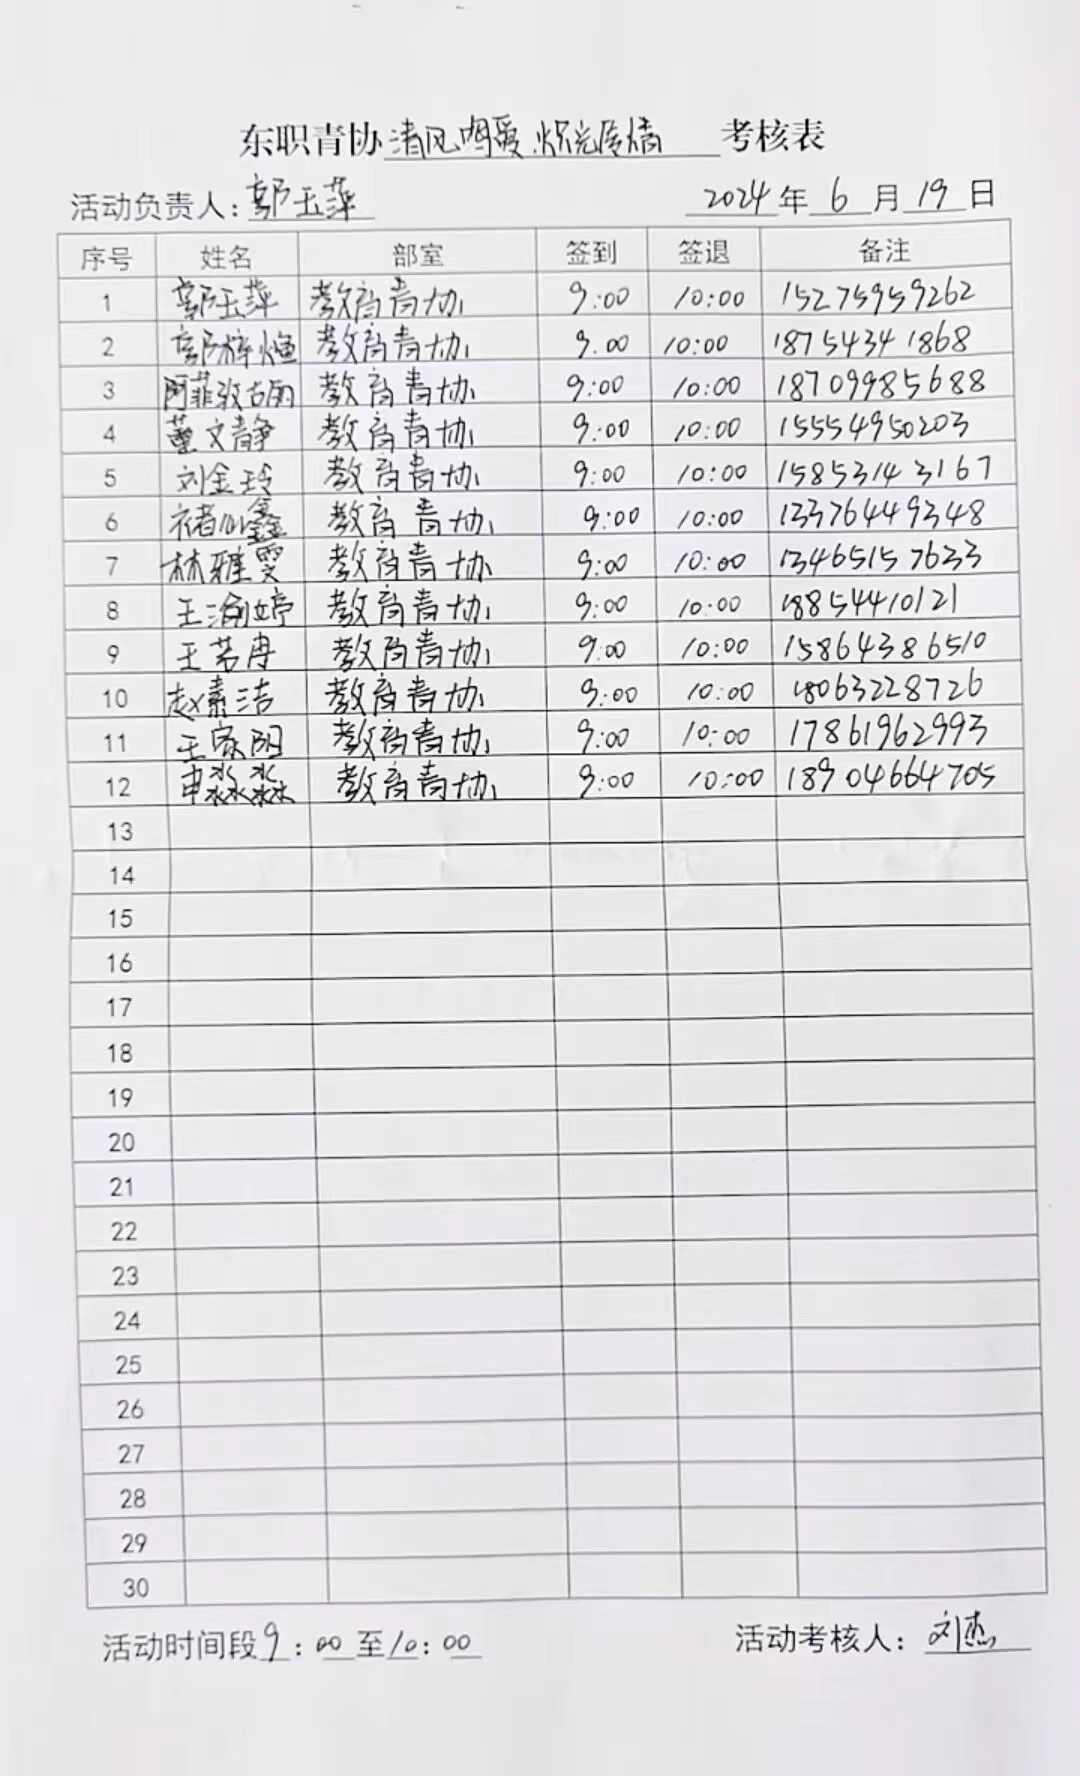 东职青协清风鸣爱 炽光传情 考核表
活动负责人：郭玉萍 2024年6月19日
序号 姓名 部室 签到 签退 备注
1 郭玉萍 教育青协 9:00 10:00 15275959262
2 郭梓 教育青协 9.00 10:00 18754341868
3 阿菲孜古丽 教育青协 9:00 10:00 18709985688
4 董文静 教育青协 9:00 10:00 15554950203
5 刘金玲 教育青协 9:00 10:00 15853143167
6 褚心鑫 教育青协 9:00 10:00 13376449348
7 林雅雯 教育青协 9:00 10:00 13465157633
8 王渝婷 教育青协 9:00 10:00 18854410121
9 王若冉 教育青协 9:00 10:00 15864386510
10 赵素洁 教育青协 9:00 10:00 18063228726
11 王家阳 教育青协 9:00 10:00 17861962993
12 申淼淼 教育青协 9:00 10:00 18904664705
13
14
15
16
17
18
19
20
21
22
23
24
25
26
27
28
29
30
活动时间段9:00至10:00 活动考核人：刘杰